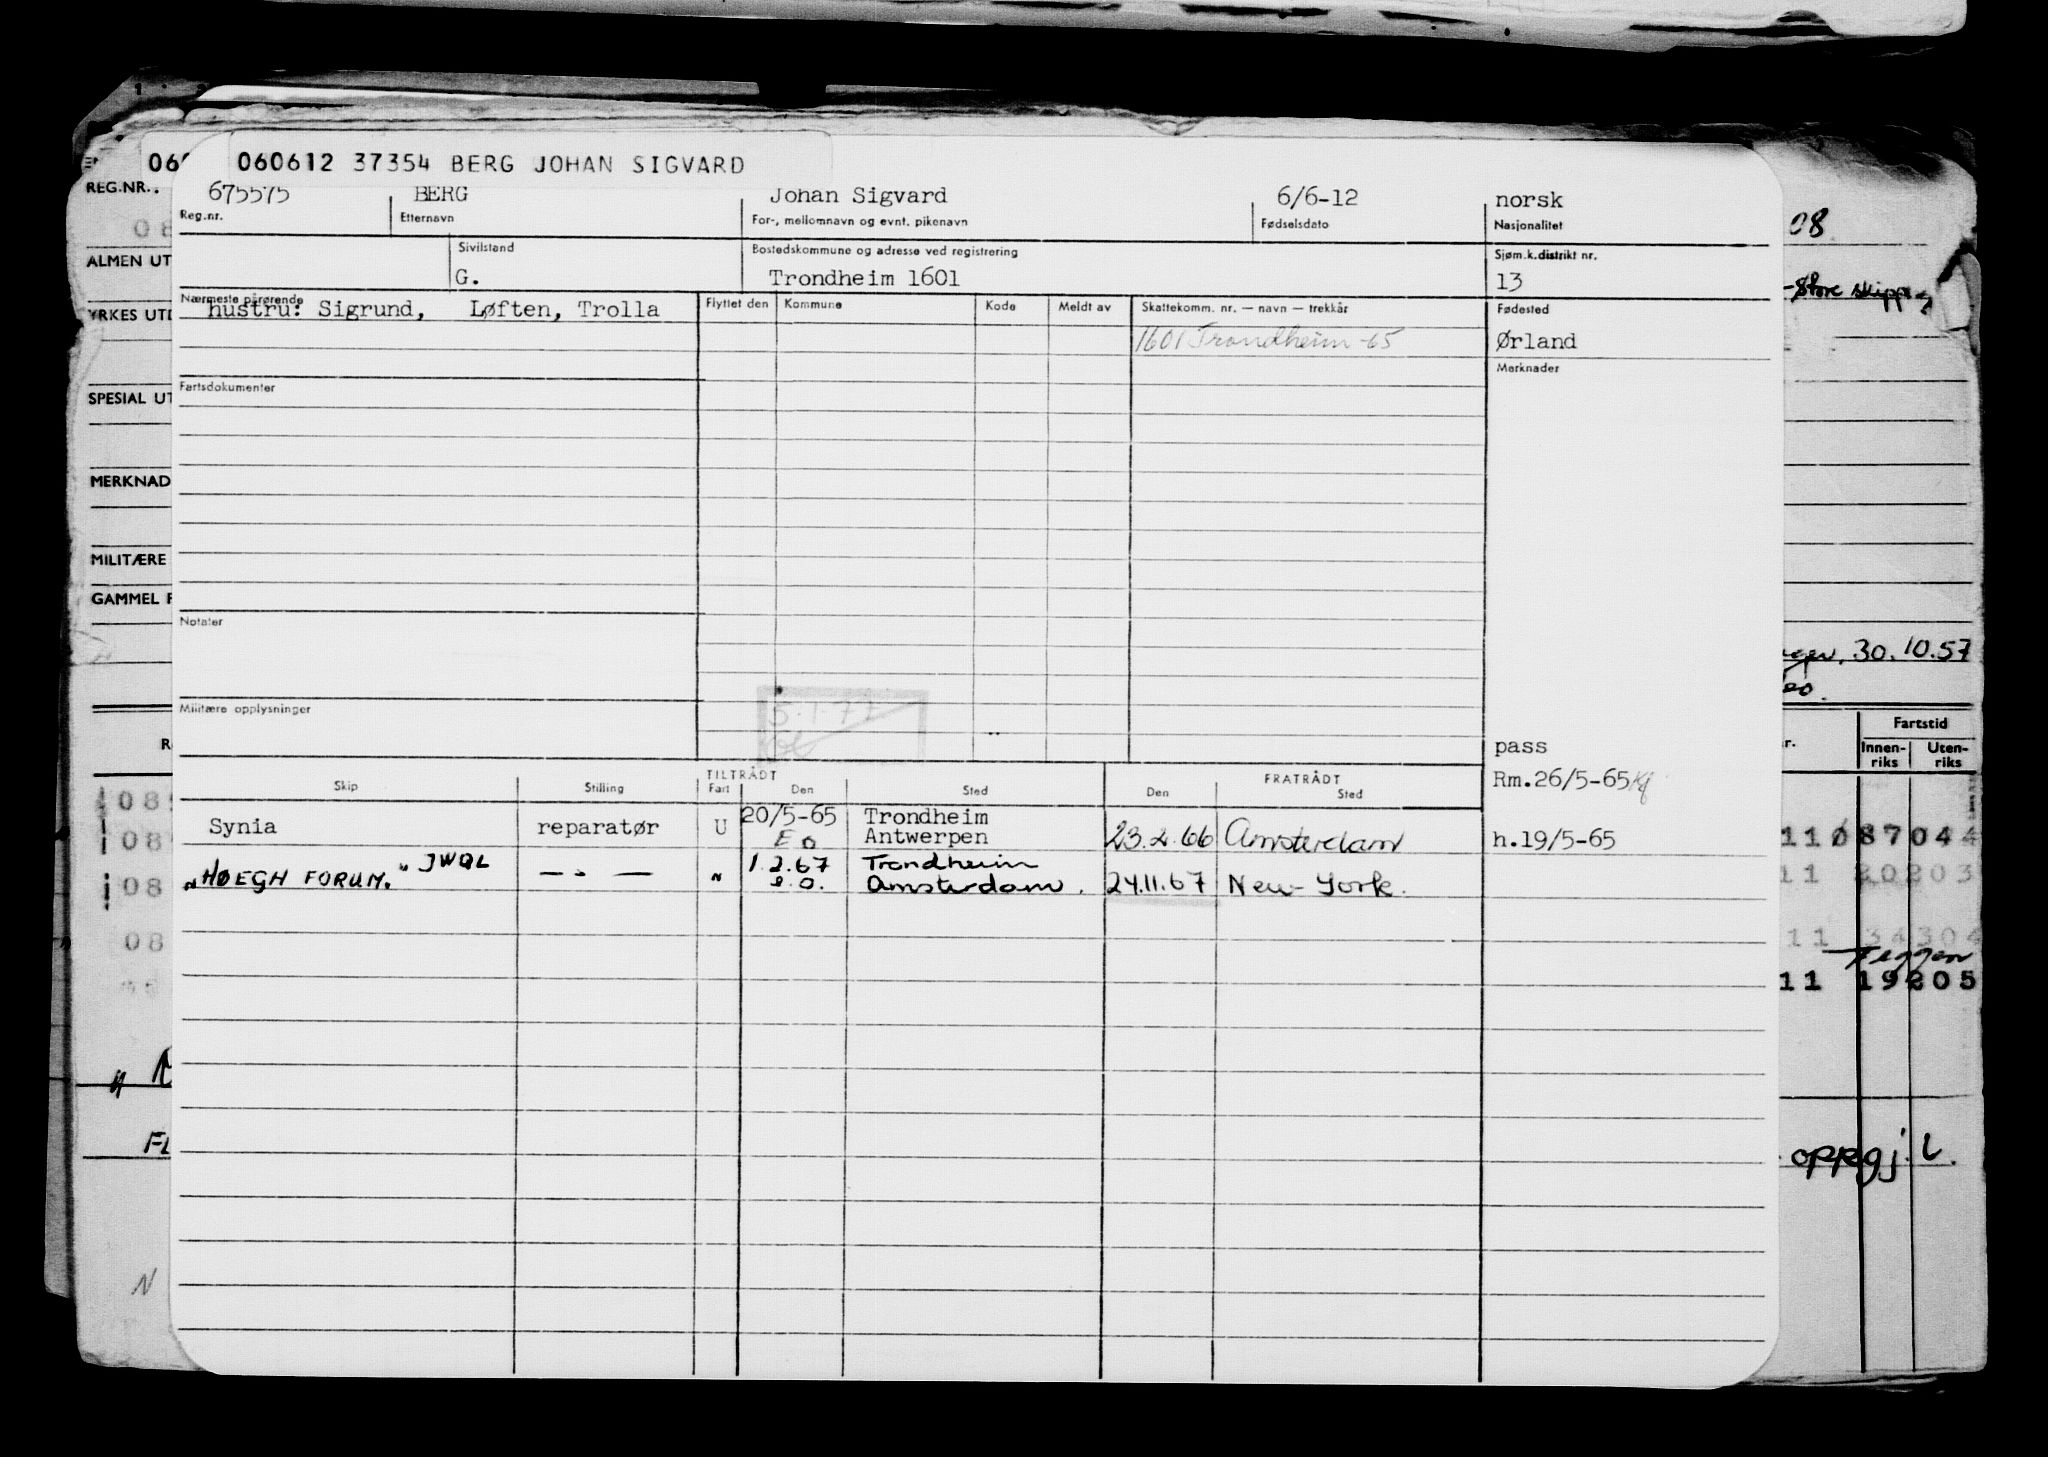 060612 37354 BERG JOHAN SIGVARD
REG.NR.
675575 BERG Johan Sigvard 6/6-12 norsk
Reg.nr. Etternavn For-, mellomnavn og evnt. pikenavn Fødselsdato Nasjonalitet
08
ALMEN UT
Sivilstand Bostedskommune og adresse ved registrering Sjøm.k.distrikt nr.
G. Trondheim 1601 13
Store skipp
YRKES UTD
Nærmeste pårørende Flyttet den Kommune Kode Meldt av Skattekomm. nr. — navn — trekkår Fødested
hustru: Sigrund, Løften, Trolla
1601 Trondheim -65 Ørland
Merknader
Fartsdokumenter
SPESIAL UT
MERKNAD
MILITÆRE
GAMMEL F
Notater
30.10.57
Militære opplysninger
5.1.77
pass
Fartstid
Innen-riks Uten-riks
TILTRÅDT FRATRÅDT Rm.26/5-65
Skip Stilling Fart Den Sted Den Sted
20/5-65 Trondheim
Synia reparatør U E o Antwerpen 23.2.66 Amsterdam h.19/5-65
1.2.67 Trondheim
"HØEGH FORUM." JWQL — " — " e.o. Amsterdam. 24.11.67 New-York.
08
08
08
08
87044
11 20203
11 34304
11 19205
N
FL
oppgj. L.
N